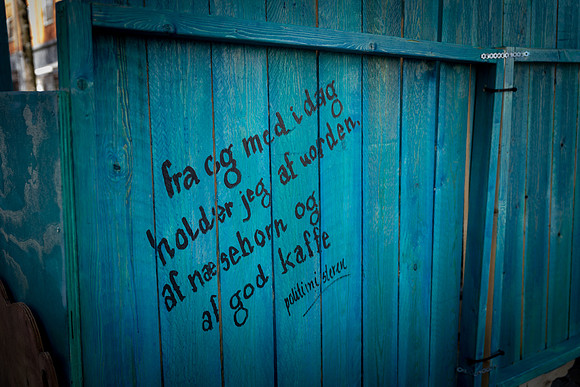 fra og med i dag
holder jeg af uorden.
af næsehorn og
af god kaffe
politimesteren